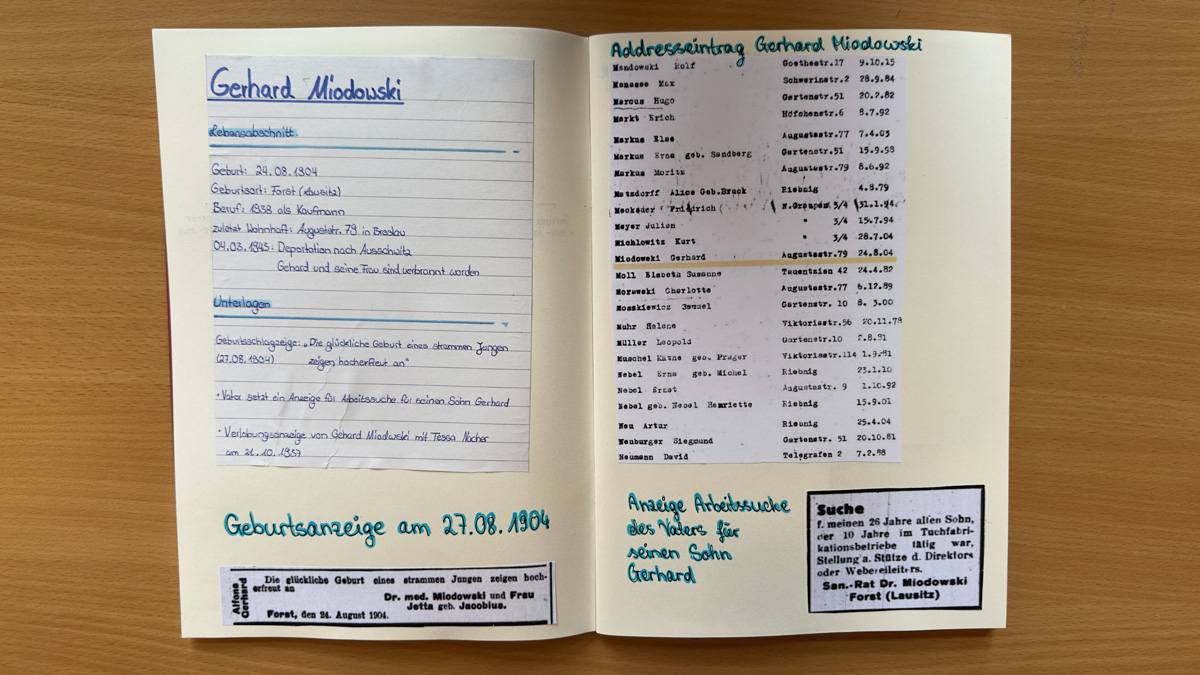 Gerhard Miodowski
Lebensabschnitt:
Geburt: 24.08.1904
Geburtsort: Forst (Lausitz)
Beruf: 1938 als Kaufmann
zuletzt Wohnhaft: Auguststr. 79 in Breslau
04.03.1943: Deportation nach Ausschwitz
Gehard und seine Frau sind verbrannt worden
Unterlagen
Geburtsschlagzeige: „Die glückliche Geburt eines strammen Jungen
(27.08.1904) zeigen hocherfreut an"
• Vater setzt ein Anzeige für Arbeitssuche für seinen Sohn Gerhard
• Verlobungsanzeige von Gehard Miodowski mit Tessa
am 21.10.1937
Geburtsanzeige am 27.08.1904
Alfons Gerhard
Die glückliche Geburt eines strammen Jungen zeigen hoch-
erfreut an
Dr. med. Miodowski und Frau
Jetta geb. Jacobius.
Forst, den 24. August 1904.
Addresseintrag Gerhard Miodowski
Mandowski Rolf Goethestr.17 9.10.15
Manasse Max Schwerinstr.2 28.9.84
Marcus Hugo Gartenstr.51 20.2.82
Markt Erich Höfchenstr.6 8.7.92
Markus Else Augustastr.77 7.4.03
Markus Erna geb. Sandberg Gartenstr.51 15.9.98
Markus Moritz Augustastr.79 8.6.92
Matzdorff Alice Geb.Bruck Riebnig 4.8.79
Meckauer Friedrich N.Graupen 3/4 31.1.94.
Meyer Julian " 3/4 15.7.94
Michlowitz Kurt " 3/4 28.7.04
Miodowski Gerhard Augustastr.79 24.8.04
Moll Elsbeth Susanne Tauentzien 42 24.4.82
Morawski Charlotte Augustastr.77 6.12.89
Moszkiewicz Samuel Gartenstr. 10 8. 3.00
Muhr Helene Viktoriastr.56 20.11.78
Müller Leopold Gartenstr.10 2.8.81
Muschel Käthe geb. Prager Viktoriastr.114 1.9.81
Nebel Erna geb. Michel Riebnig 23.1.10
Nebel Ernst Augustastr. 9 1.10.92
Nebel geb. Nebel Henriette Riebnig 15.9.01
Neu Artur Riebnig 25.4.04
Neuburger Siegmund Gartenstr. 51 20.10.81
Neumann David Telegrafen 2 7.2.88
Anzeige Arbeitssuche
des Vaters für
seinen Sohn
Gerhard
Suche
f. meinen 26 Jahre alten Sohn,
der 10 Jahre im Tuchfabri-
kationsbetriebe tätig war,
Stellung a. Stütze d. Direktors
oder Webereileiters.
San.-Rat Dr. Miodowski
Forst (Lausitz)